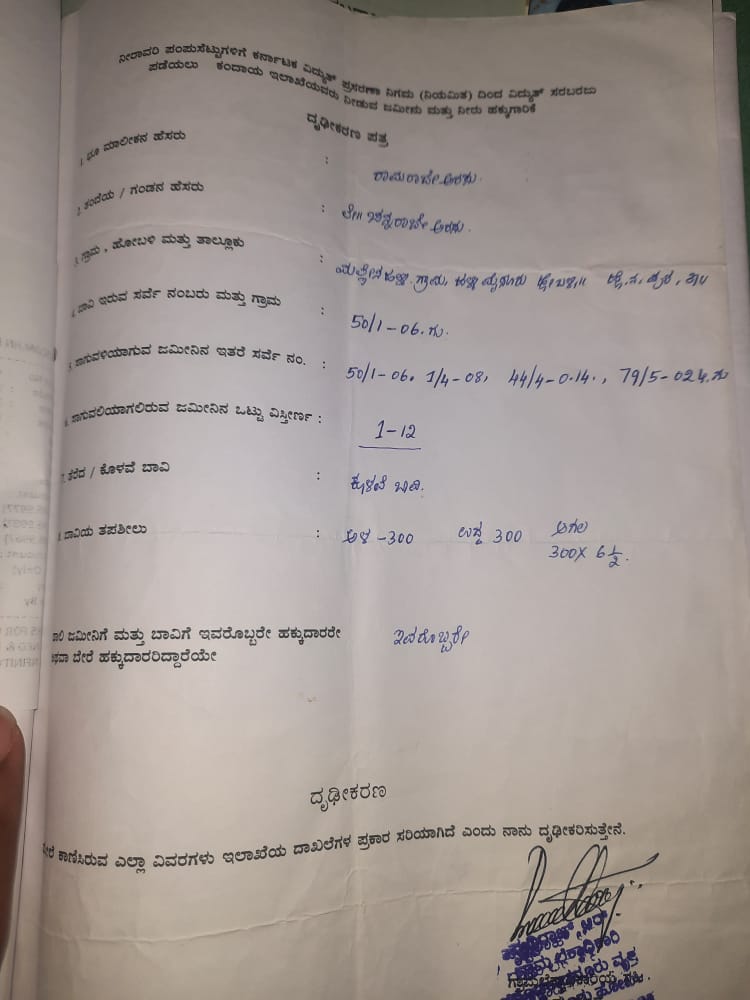 ನೀರಾವರಿ ಪಂಪುಸೆಟ್ಟುಗಳಿಗೆ ಕರ್ನಾಟಕ ವಿದ್ಯುತ್ ಪ್ರಸರಣಾ ನಿಗಮ (ನಿಯಮಿತ) ದಿಂದ ವಿದ್ಯುತ್ ಸರಬರಜು
ಪಡೆಯಲು ಕಂದಾಯ ಇಲಾಖೆಯವರು ನೀಡುವ ಜಮೀನು ಮತ್ತು ನೀರು ಹಕ್ಕುಗಾರಿಕೆ
ದೃಢೀಕರಣ ಪತ್ರ
1. ಭೂ ಮಾಲೀಕನ ಹೆಸರು : ರಾಮರಾಜೇ ಅರಸು.
2. ತಂದೆಯ / ಗಂಡನ ಹೆಸರು : ಲೇ॥ ಚನ್ನರಾಜೇ ಅರಸು.
3. ಗ್ರಾಮ , ಹೋಬಳಿ ಮತ್ತು ತಾಲ್ಲೂಕು : ಗ್ರಾಮ,
4. ಬಾವಿ ಇರುವ ಸರ್ವೆ ನಂಬರು ಮತ್ತು ಗ್ರಾಮ : 50/1-06.ಗು.
5. ಸಾಗುವಳಿಯಾಗುವ ಜಮೀನಿನ ಇತರೆ ಸರ್ವೆ ನಂ. : 50/1-06, 1/4-08, 44/4-0.14., 79/5-024.ಗು
6. ಸಾಗುವಲಿಯಾಗಲಿರುವ ಜಮೀನಿನ ಒಟ್ಟು ವಿಸ್ತೀರ್ಣ : 1-12
7. ತೆರೆದ / ಕೊಳವೆ ಬಾವಿ : ಕೊಳವೆ ಬಾವಿ.
8. ಬಾವಿಯ ತಪಶೀಲು : ಆಳ -300 ಉದ್ದ 300 ಅಗಲ
300X 6½.
ಜಮೀನಿಗೆ ಮತ್ತು ಬಾವಿಗೆ ಇವರೊಬ್ಬರೇ ಹಕ್ಕುದಾರರೇ ಇವರೊಬ್ಬರೇ
ಬೇರೆ ಹಕ್ಕುದಾರರಿದ್ದಾರೆಯೇ
ದೃಢೀಕರಣ
ಕಾಣಿಸಿರುವ ಎಲ್ಲಾ ವಿವರಗಳು ಇಲಾಖೆಯ ದಾಖಲೆಗಳ ಪ್ರಕಾರ ಸರಿಯಾಗಿದೆ ಎಂದು ನಾನು ದೃಢೀಕರಿಸುತ್ತೇನೆ.